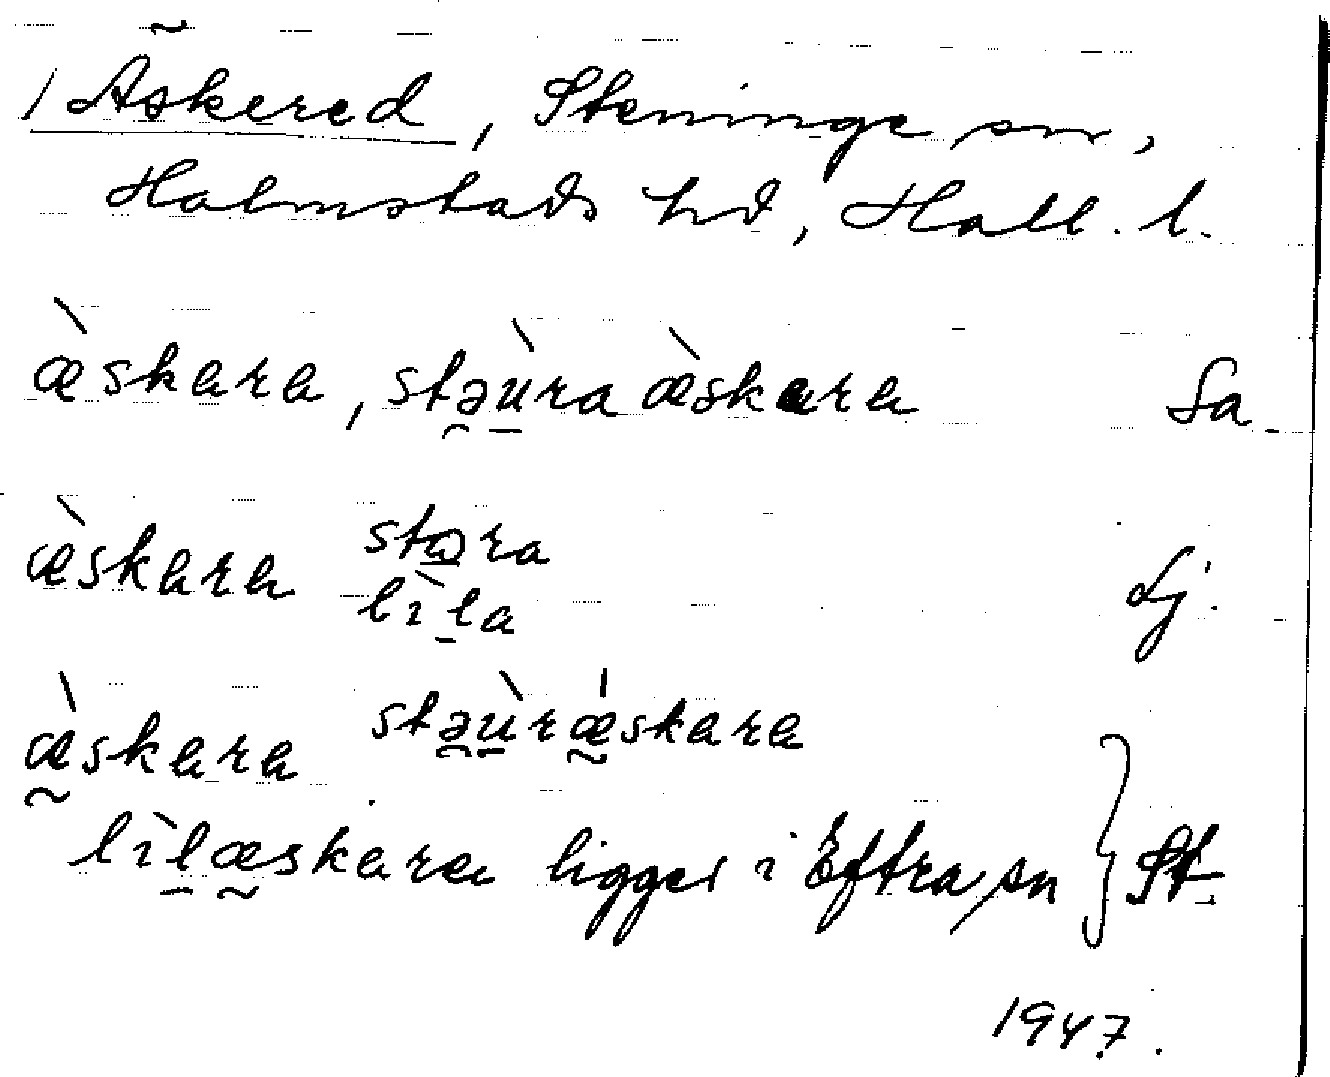 / Äskered, Steninge sn,
Halmstads hd, Hall. l.
æ̀skara, stəùra æ̀skara Sa.
æ̀skara stɔra
lìla Lj.
æ̀skara stəùrǽskara
lìlæskara ligger i Eftra sn } St.
1947.